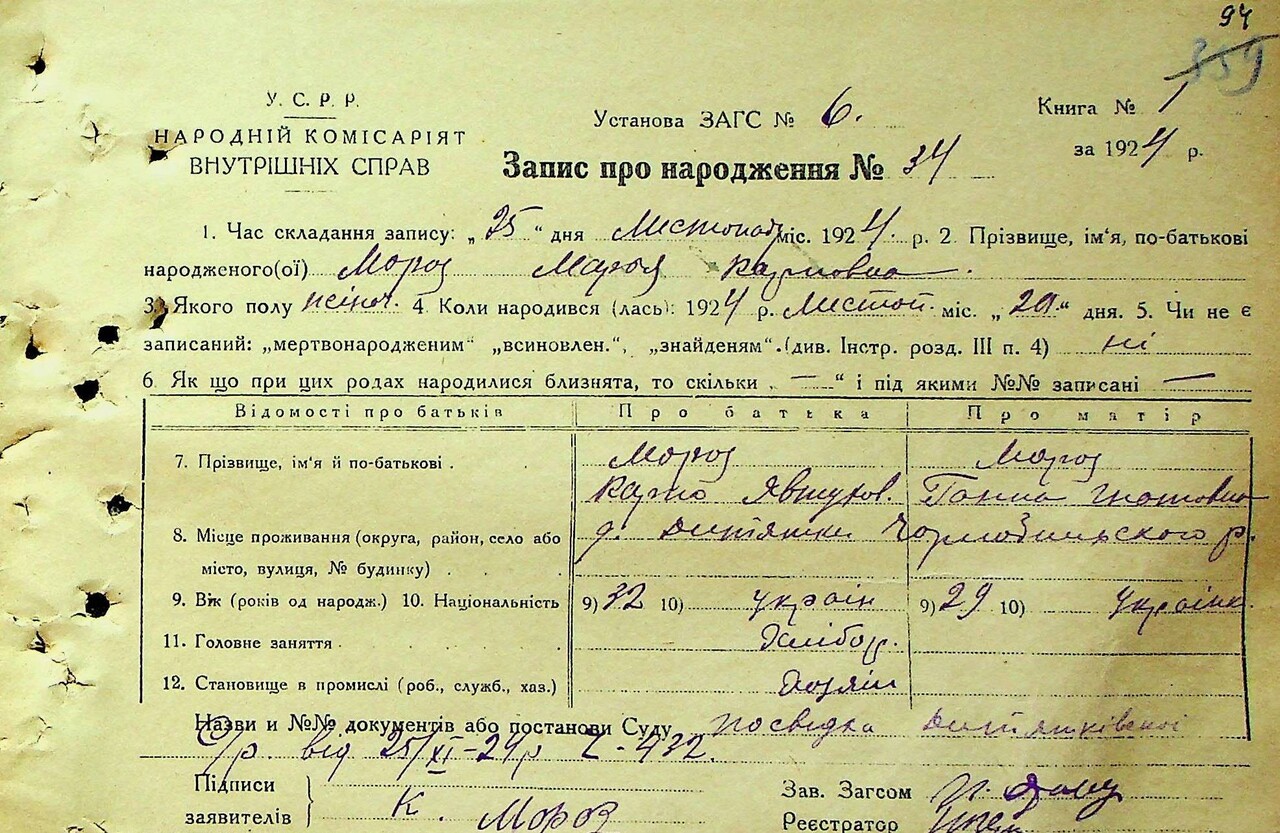 94
359
У. С. Р. Р.
НАРОДНІЙ КОМІСАРІЯТ
ВНУТРІШНІХ СПРАВ
Установа ЗАГС № 6.
Книга № 1
за 1924 р.
Запис про народження № 34
1. Час складання запису: „25“ дня Листопад міс. 1924 р. 2. Прізвище, ім'я, по-батькові
народженого(ої) Мороз Марія Карповна.
3. Якого полу жіноч. 4. Коли народився (лась): 1924 р. Листоп. міс. „20“ дня. 5. Чи не є
записаний: „мертвонародженим“ „всиновлен.“, „знайденям“. (див. Інстр. розд. III п. 4) ні
6. Як що при цих родах народилися близнята, то скільки „—“ і під якими №№ записані —
Відомості про батьків Про батька Про матір
7. Прізвище, ім'я й по-батькові . Мороз Мороз
Карпо Явтухов. Ганна Гнатовна
8. Місце проживання (округа, район, село або д. Дитятки Чорнобильського р.
місто, вулиця, № будинку)
9. Вік (років од народж.) 10. Національність 9) 32 10) україн 9) 29 10) українк.
11. Головне заняття Хлібор.
12. Становище в промислі (роб., служб., хаз.) Хозяін
Назви и №№ документів або постанови Суду Посвідка Дитятківської
С/р. від 25/XI-24р 432.
Підписи
заявителів К. Мороз
Зав. Загсом
Реєстратор